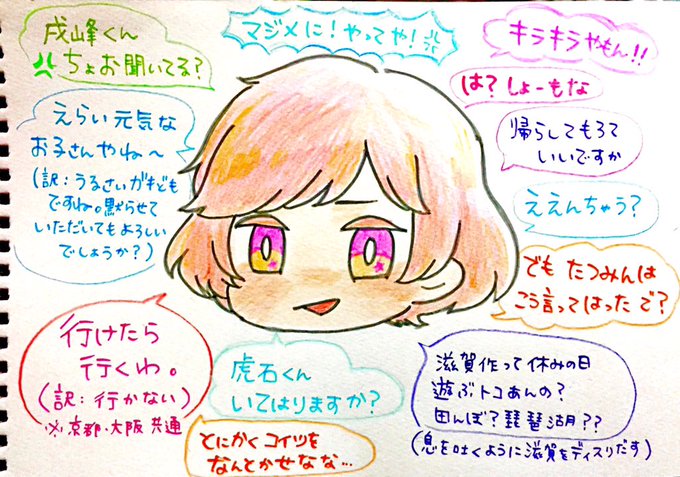 戌峰くん
ちょお聞いてる?
マジメに!やってや!
キラキラやもん!!
は?しょーもな
えらい元気な
お子さんやね〜
(訳:うるさいガキども
ですね。黙らせて
いただいてもよろしい
でしょうか?)
帰らしてもろて
いいですか
ええんちゃう?
でもたつみんは
こう言ってはったで?
行けたら
行くわ。
(訳:行かない)
※京都・大阪 共通
虎石くん
いてはりますか?
とにかくコイツを
なんとかせなな…
滋賀作って休みの日
遊ぶトコあんの?
田んぼ?琵琶湖??
(息を吐くように滋賀をディスりだす)